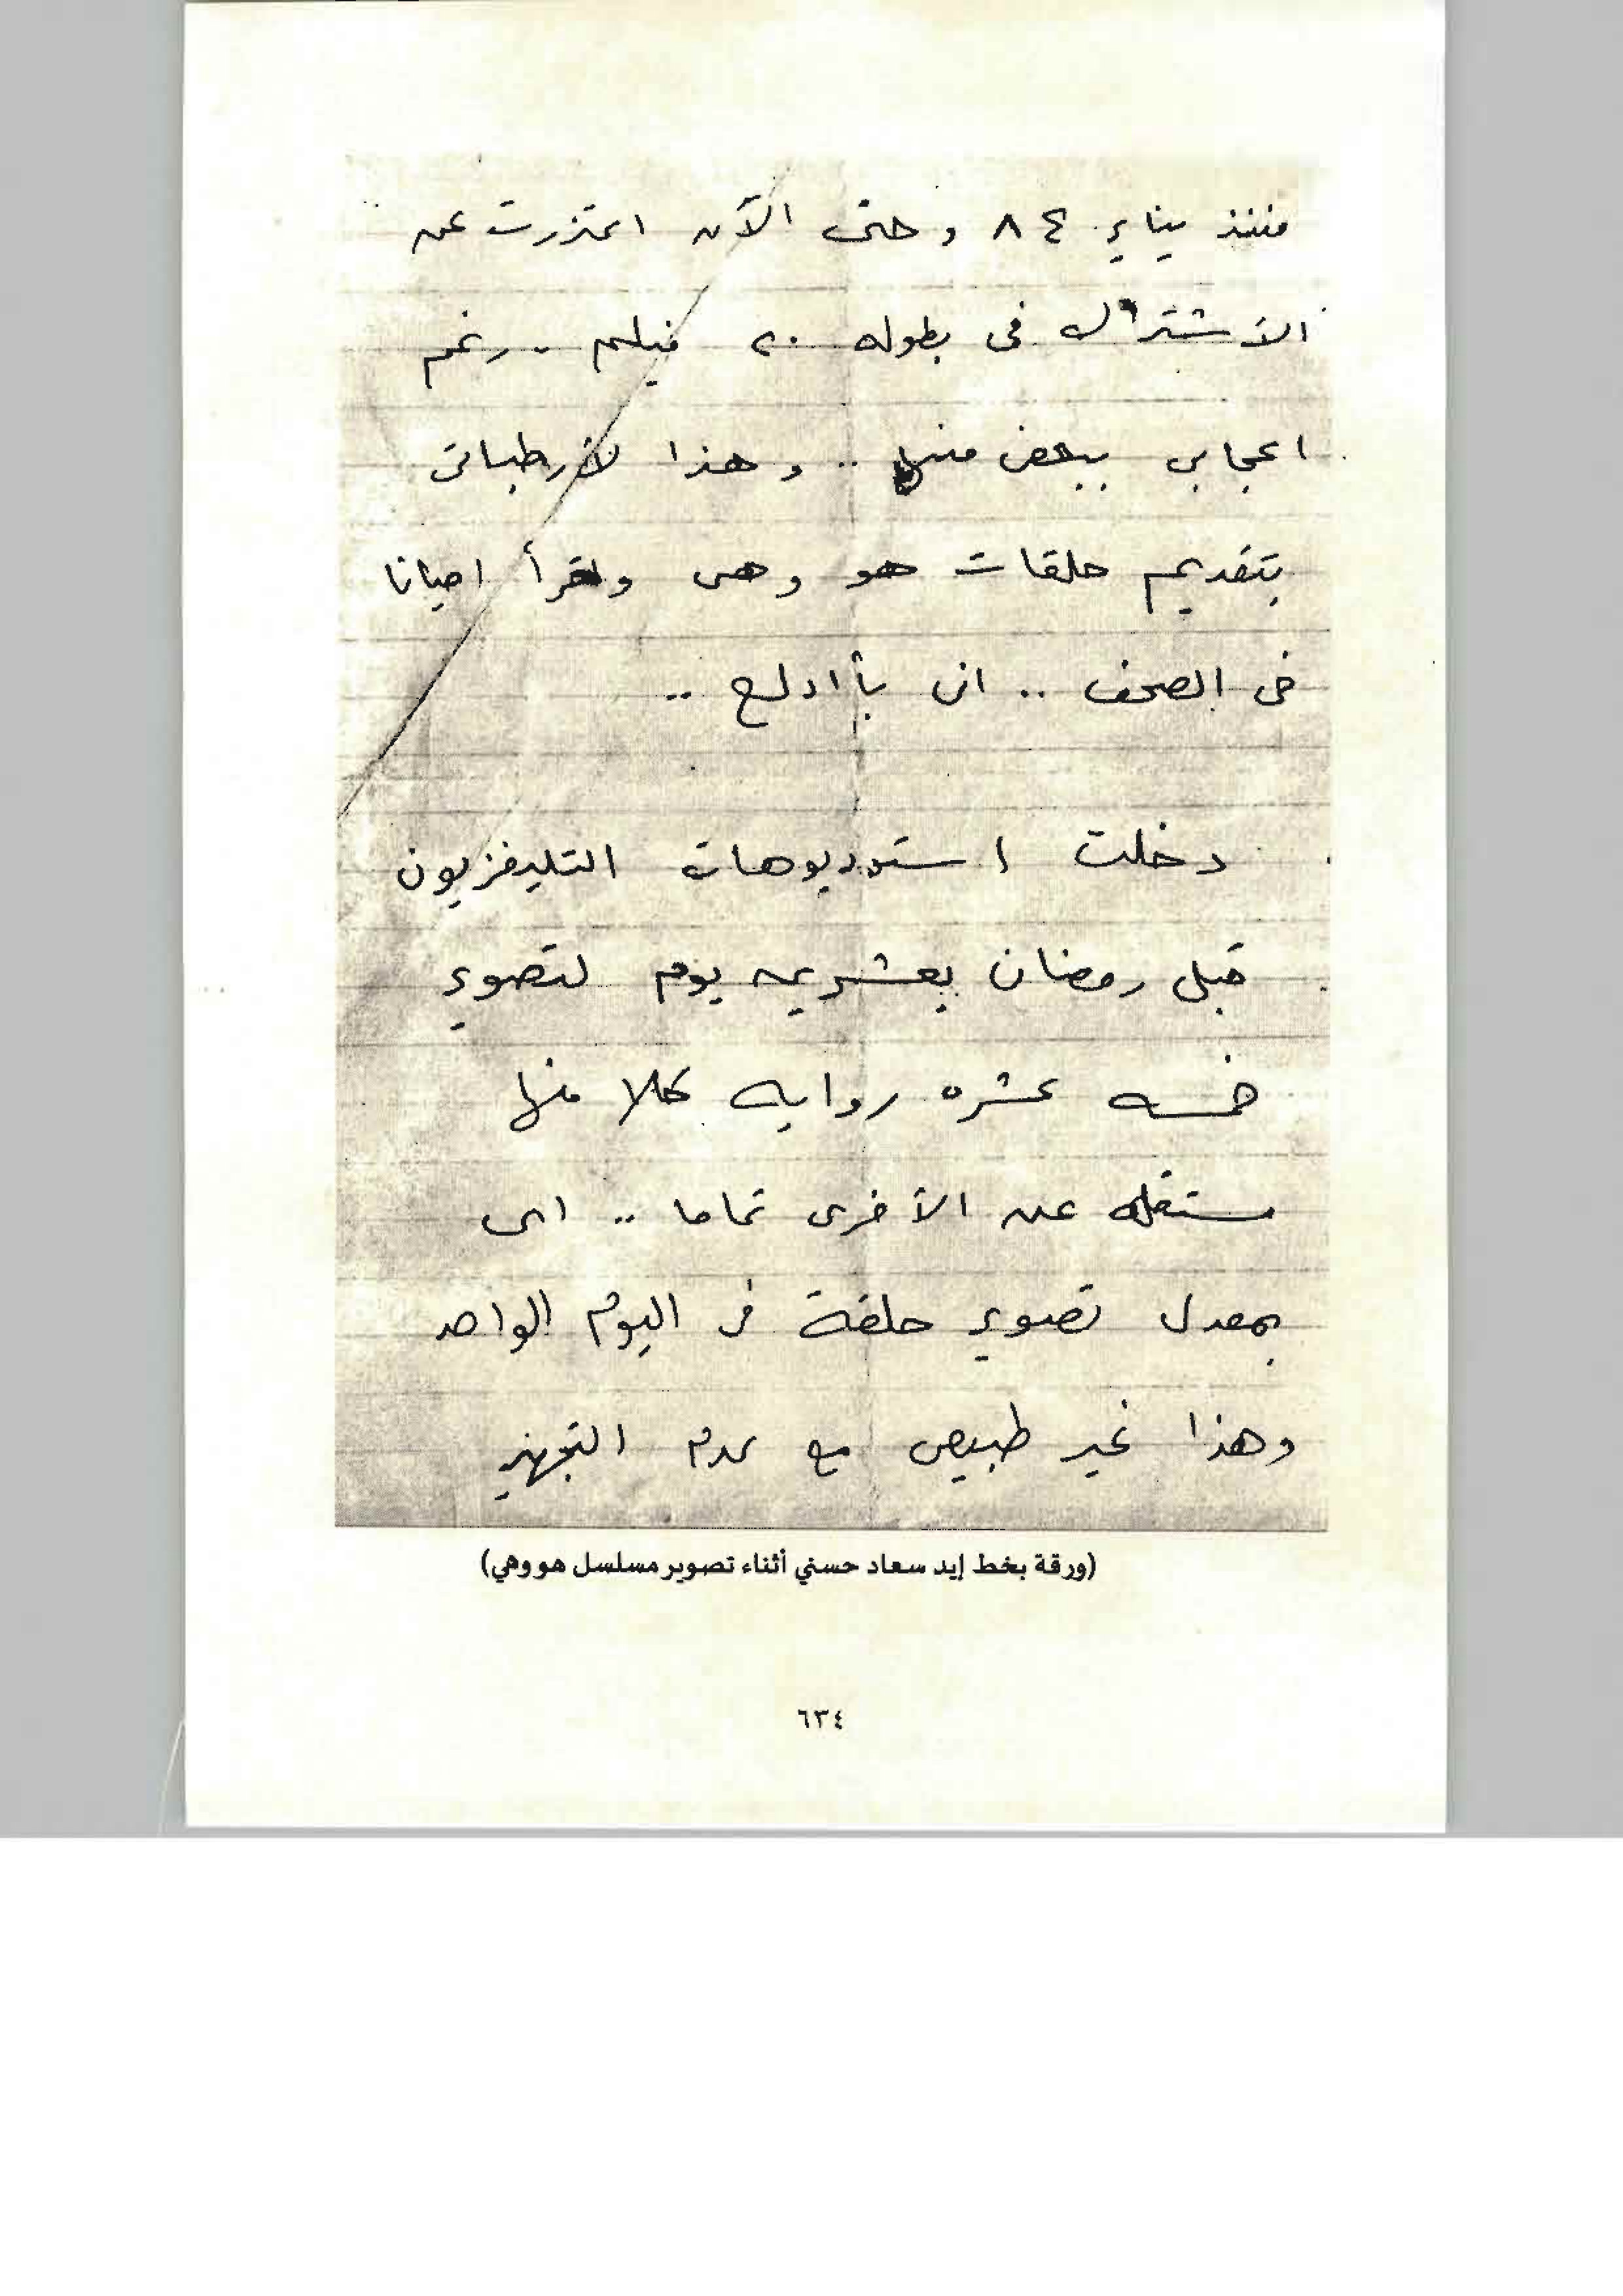 منذ يناير ٨٤ وحتى الآن اعتذرت عن
الأشتراك فى بطوله ٢٠ فيلم .. رغم
اعجابى ببعض منها .. وهذا لأرطباتى
بتقديم حلقات هو وهى واقرأ احيانا
فى الصحف .. انى بأادلع ..
دخلت استوديوهات التليفزيون
قبل رمضان بعشرين يوم لتصوير
خمسه عشره روايه كلا منها
مستقله عن الأخرى تماما .. اى
بمعدل تصوير حلقة فى اليوم الواحد
وهذا غير طبيعى مع عدم التجهيز
(ورقة بخط إيد سعاد حسني أثناء تصوير مسلسل هو وهي)
٦٣٤